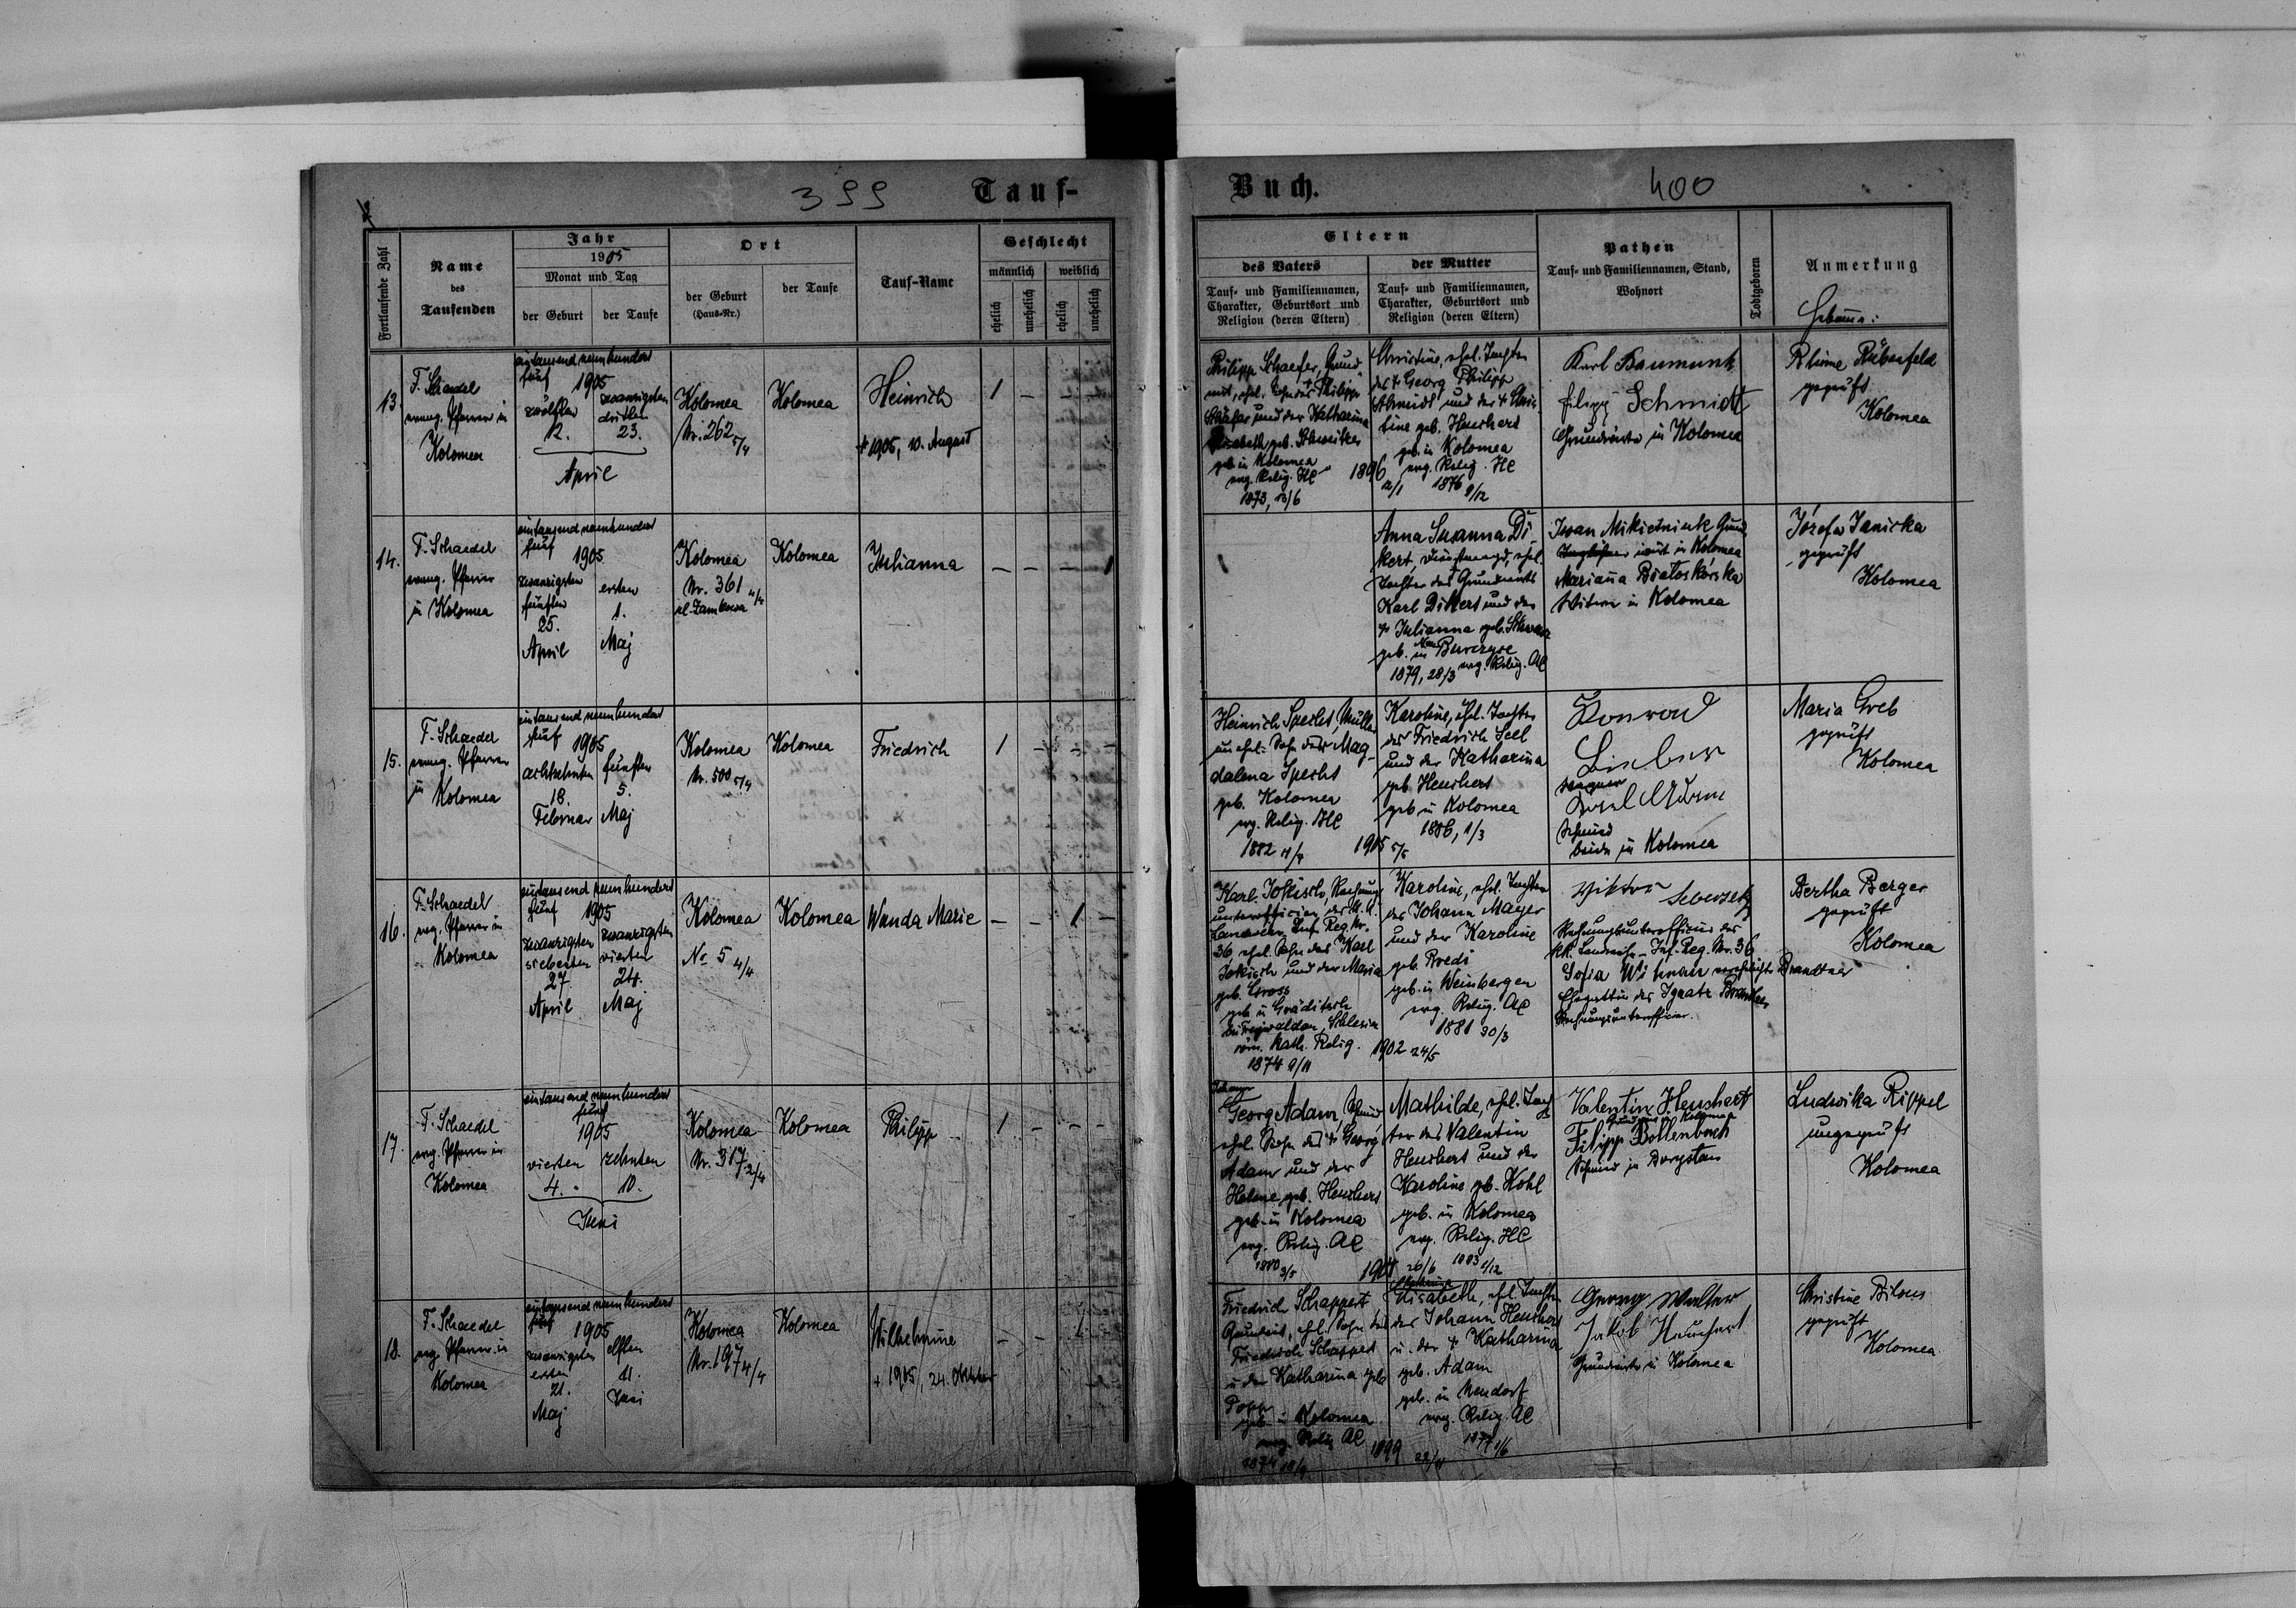 399 Tauf-
Fortlaufende Zahl
Name
des
Taufenden
Jahr
1905
Monat und Tag
der Geburt
der Taufe
Ort
der Geburt
(Haus-Nr.)
der Taufe
Tauf-Name
Geschlecht
männlich
weiblich
ehelich
unehelich
ehelich
unehelich
13.
F. Schaedel
evang. Pfarrer in
Kolomea
eintausend neunhundert
fünf 1905
zwölften
12.
zwanzigsten
dritten
23.
April
Kolomea
Nr. 262 5/4
Kolomea
Heinrich
+ 1905, 10. August
1 - - -
14.
F. Schaedel
evang. Pfarrer
in Kolomea
eintausend neunhundert
fünf 1905
zwanzigsten
fünften
25.
April
ersten
1.
Maj
Kolomea
Nr. 361 4/4
Kolomea
Julianna
- - - 1
15.
F. Schaedel
evang. Pfarrer
in Kolomea
eintausend neunhundert
fünf 1905
achtzehnten
18.
Februar
fünften
5.
Maj
Kolomea
Nr. 500 5/4
Kolomea
Friedrich
1 - - -
16.
F. Schaedel
evg. Pfarrer in
Kolomea
eintausend neunhundert
fünf 1905
zwanzigsten
siebenten
27.
April
zwanzigsten
vierten
24.
Maj
Kolomea
No 5 4/4
Kolomea
Wanda Marie
- - 1 -
17.
F. Schaedel
evg. Pfarrer in
Kolomea
eintausend neunhundert
fünf
1905
vierten
4.
zehnten
10.
Juni
Kolomea
Nr. 317 2/4
Kolomea
Philipp
1 - - -
18.
F. Schaedel
evg. Pfarrer in
Kolomea
eintausend neunhundert
fünf 1905
zwanzigsten
ersten
21.
Maj
elften
11.
Juni
Kolomea
Nr. 197 4/4
Kolomea
Wilhelmine
+ 1905, 24. Oktober
- - 1 -
Buch. 400
Eltern
des Vaters
Tauf- und Familiennamen,
Charakter, Geburtsort und
Religion (deren Eltern)
der Mutter
Tauf- und Familiennamen,
Charakter, Geburtsort und
Religion (deren Eltern)
Pathen
Tauf- und Familiennamen, Stand,
Wohnort
Todtgeboren
Anmerkung
Hebamme:
Philipp Schaefer, Grund-
wirt, ehel. Sohn des + Philipp
Schäfer und der Katharina
Elisabeth geb. Schweitzer
geb. in Kolomea
evg. Relig. HC
1873, 13/6
1896 2/1
Christine, ehel. Tochter
des + Georg Philipp
Schmidt und der + Chris-
tine geb. Heuchert
geb. in Kolomea
evg. Relig. HC
1876 9/12
Karl Baumunk
Filipp Schmidt
Grundwirte in Kolomea
Rhime Rübenfeld
geprüft
Kolomea
Anna Susanna Di-
kert, Dienstmagd, ehel.
Tochter des Grundwirts
Karl Dikert und der
+ Julianna geb. Schwarz
geb. in
1879, 28/3 evg. Relig. AC
Iwan Mikietniuk Grund
wirt in Kolomea
Marianna Białoskórska
Witwe in Kolomea
Józefa Janicka
geprüft
Kolomea
Heinrich Specht, Müller
un ehel. Sohn der Mag-
dalena Specht
geb. Kolomea
evg. Relig. HC
1882
1905 5/5
Karoline, ehel. Tochter
des Friedrich Seel
und der Katharina
geb. Heuchert
geb. in Kolomea
1886, 1/3
Konrad
Lieber
Wagner
Schmied
beide in Kolomea
Maria Greb
geprüft
Kolomea
Karl Jokisch, Rechnungs-
unterofficier des k.k.
Landwehr Inf. Reg. Nr.
36, ehel. Sohn des Karl
Jokisch und der Maria
geb. Gross
geb. in Gräditsch
bei Freiwaldau, Schlesien
röm. kath. Relig.
1874 9/11
1902 24/5
Karoline, ehel. Tochter
des Johann Mayer
und der Karoline
geb. Roedi
geb. in Weinbergen
evg. Relig. AC
1881 30/3
Viktor
Rechnungsunterofficier des
kk. Landwehr-Inf. Reg. Nr. 36
Sofia Brandtner
Ehegattin des Ignatz
Rechnungsunterofficier.
Bertha Berger
geprüft
Kolomea
Johann
Georg Adam, Schmied
ehel. Sohn des + Georg
Adam und der
Helene geb. Heuchert
geb. in Kolomea
evg. Relig. AC
1880 3/5
1904 26/6
Mathilde, ehel. Toch-
ter des Valentin
Heuchert und der
Karoline geb. Kohl
geb. in Kolomea
evg. Relig. HC
1883 1/12
Valentin Heuchert
Grundwirt in Kolomea
Filipp Bollenbach
Schmied in Borysław
Ludwika Rippel
ungeprüft
Kolomea
Friedrich Schappert
Grundwirt, ehel. Sohn des
Friedrich Schappert
u. der Katharina geb.
Popp
geb. in Kolomea
evg. Relig. AC
1874
1899
Katharina
Elisabeth, ehel. Tochter
des Johann Heuchert
u. der + Katharina
geb. Adam
geb. in Neudorf
evg. Relig. AC
1877 1/6
Georg Walter
Jakob Heuchert
Grundwirte in Kolomea
Christine Bilous
geprüft
Kolomea